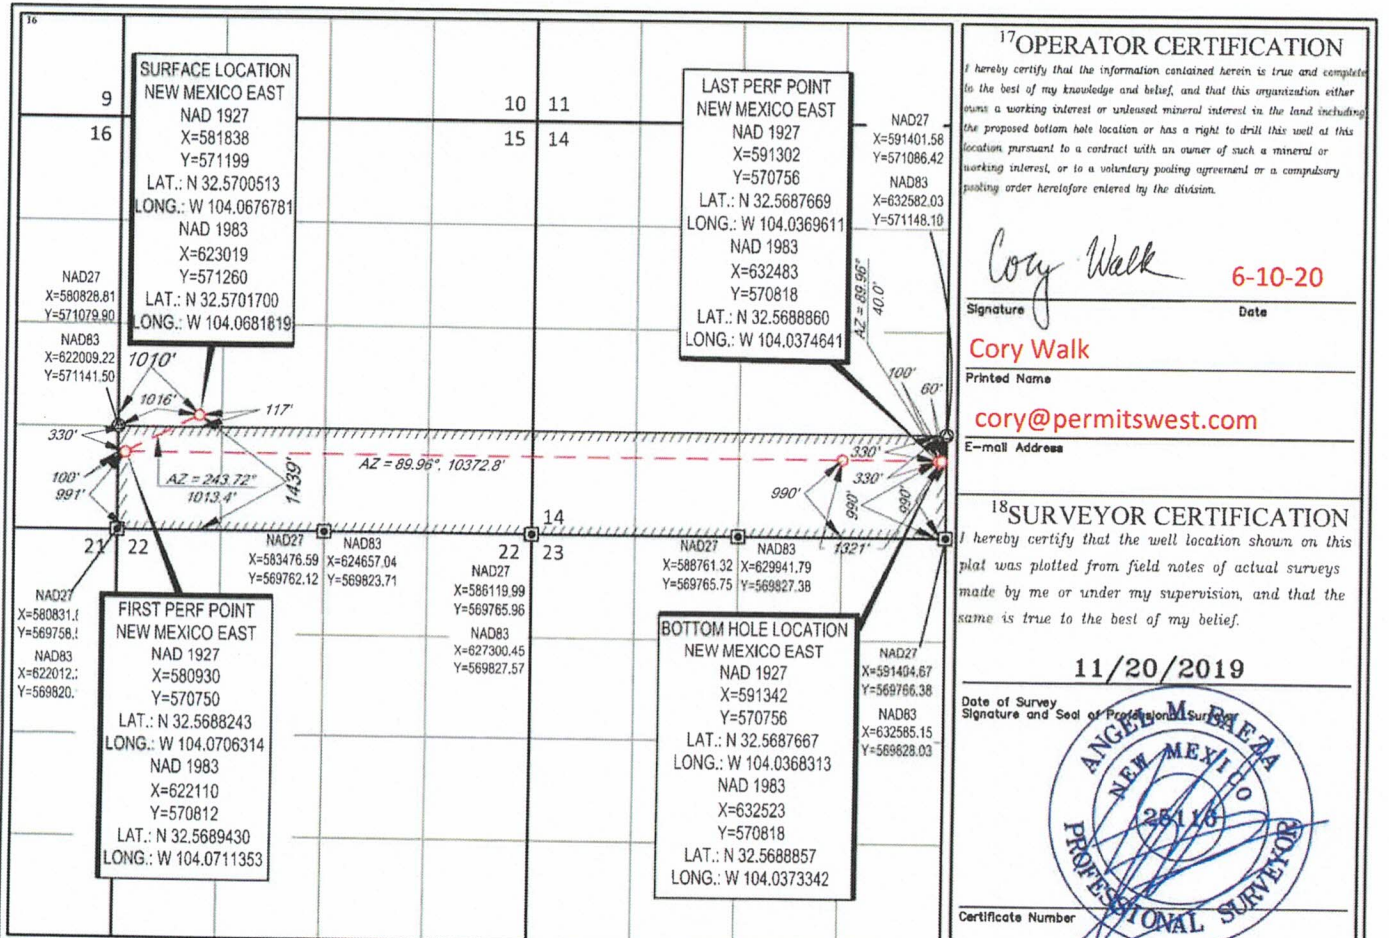 16
9
10
11
16
15
14
SURFACE LOCATION
NEW MEXICO EAST
NAD 1927
X=581838
Y=571199
LAT.: N 32.5700513
LONG.: W 104.0676781
NAD 1983
X=623019
Y=571260
LAT.: N 32.5701700
LONG.: W 104.0681819
LAST PERF POINT
NEW MEXICO EAST
NAD 1927
X=591302
Y=570756
LAT.: N 32.5687669
LONG.: W 104.0369611
NAD 1983
X=632483
Y=570818
LAT.: N 32.5688860
LONG.: W 104.0374641
NAD27
X=591401.58
Y=571086.42
NAD83
X=632582.03
Y=571148.10
NAD27
X=580828.81
Y=571079.90
NAD83
X=622009.22
Y=571141.50
1010'
1016'
117'
330'
100'
991'
AZ = 243.72°
1013.4'
1439'
AZ = 89.96°, 10372.8'
AZ = 89.96°
40.0'
100'
60'
330'
330'
990'
990'
990'
1321'
14
21
22
22
23
NAD27
X=583476.59
Y=569762.12
NAD83
X=624657.04
Y=569823.71
NAD27
X=586119.99
Y=569765.96
NAD83
X=627300.45
Y=569827.57
NAD27
X=588761.32
Y=569765.75
NAD83
X=629941.79
Y=569827.38
NAD27
X=580831.
Y=569758.
NAD83
X=622012.
Y=569820.
FIRST PERF POINT
NEW MEXICO EAST
NAD 1927
X=580930
Y=570750
LAT.: N 32.5688243
LONG.: W 104.0706314
NAD 1983
X=622110
Y=570812
LAT.: N 32.5689430
LONG.: W 104.0711353
BOTTOM HOLE LOCATION
NEW MEXICO EAST
NAD 1927
X=591342
Y=570756
LAT.: N 32.5687667
LONG.: W 104.0368313
NAD 1983
X=632523
Y=570818
LAT.: N 32.5688857
LONG.: W 104.0373342
NAD27
X=591404.67
Y=569766.38
NAD83
X=632585.15
Y=569828.03
17 OPERATOR CERTIFICATION
I hereby certify that the information contained herein is true and complete
to the best of my knowledge and belief, and that this organization either
owns a working interest or unleased mineral interest in the land including
the proposed bottom hole location or has a right to drill this well at this
location pursuant to a contract with an owner of such a mineral or
working interest, or to a voluntary pooling agreement or a compulsory
pooling order heretofore entered by the division.
Cory Walk
6-10-20
Signature
Date
Cory Walk
Printed Name
cory@permitswest.com
E-mail Address
18 SURVEYOR CERTIFICATION
I hereby certify that the well location shown on this
plat was plotted from field notes of actual surveys
made by me or under my supervision, and that the
same is true to the best of my belief.
11/20/2019
Date of Survey
Signature and Seal of Professional Surveyor
ANGEL M. BAEZA
NEW MEXICO
25116
PROFESSIONAL SURVEYOR
Certificate Number